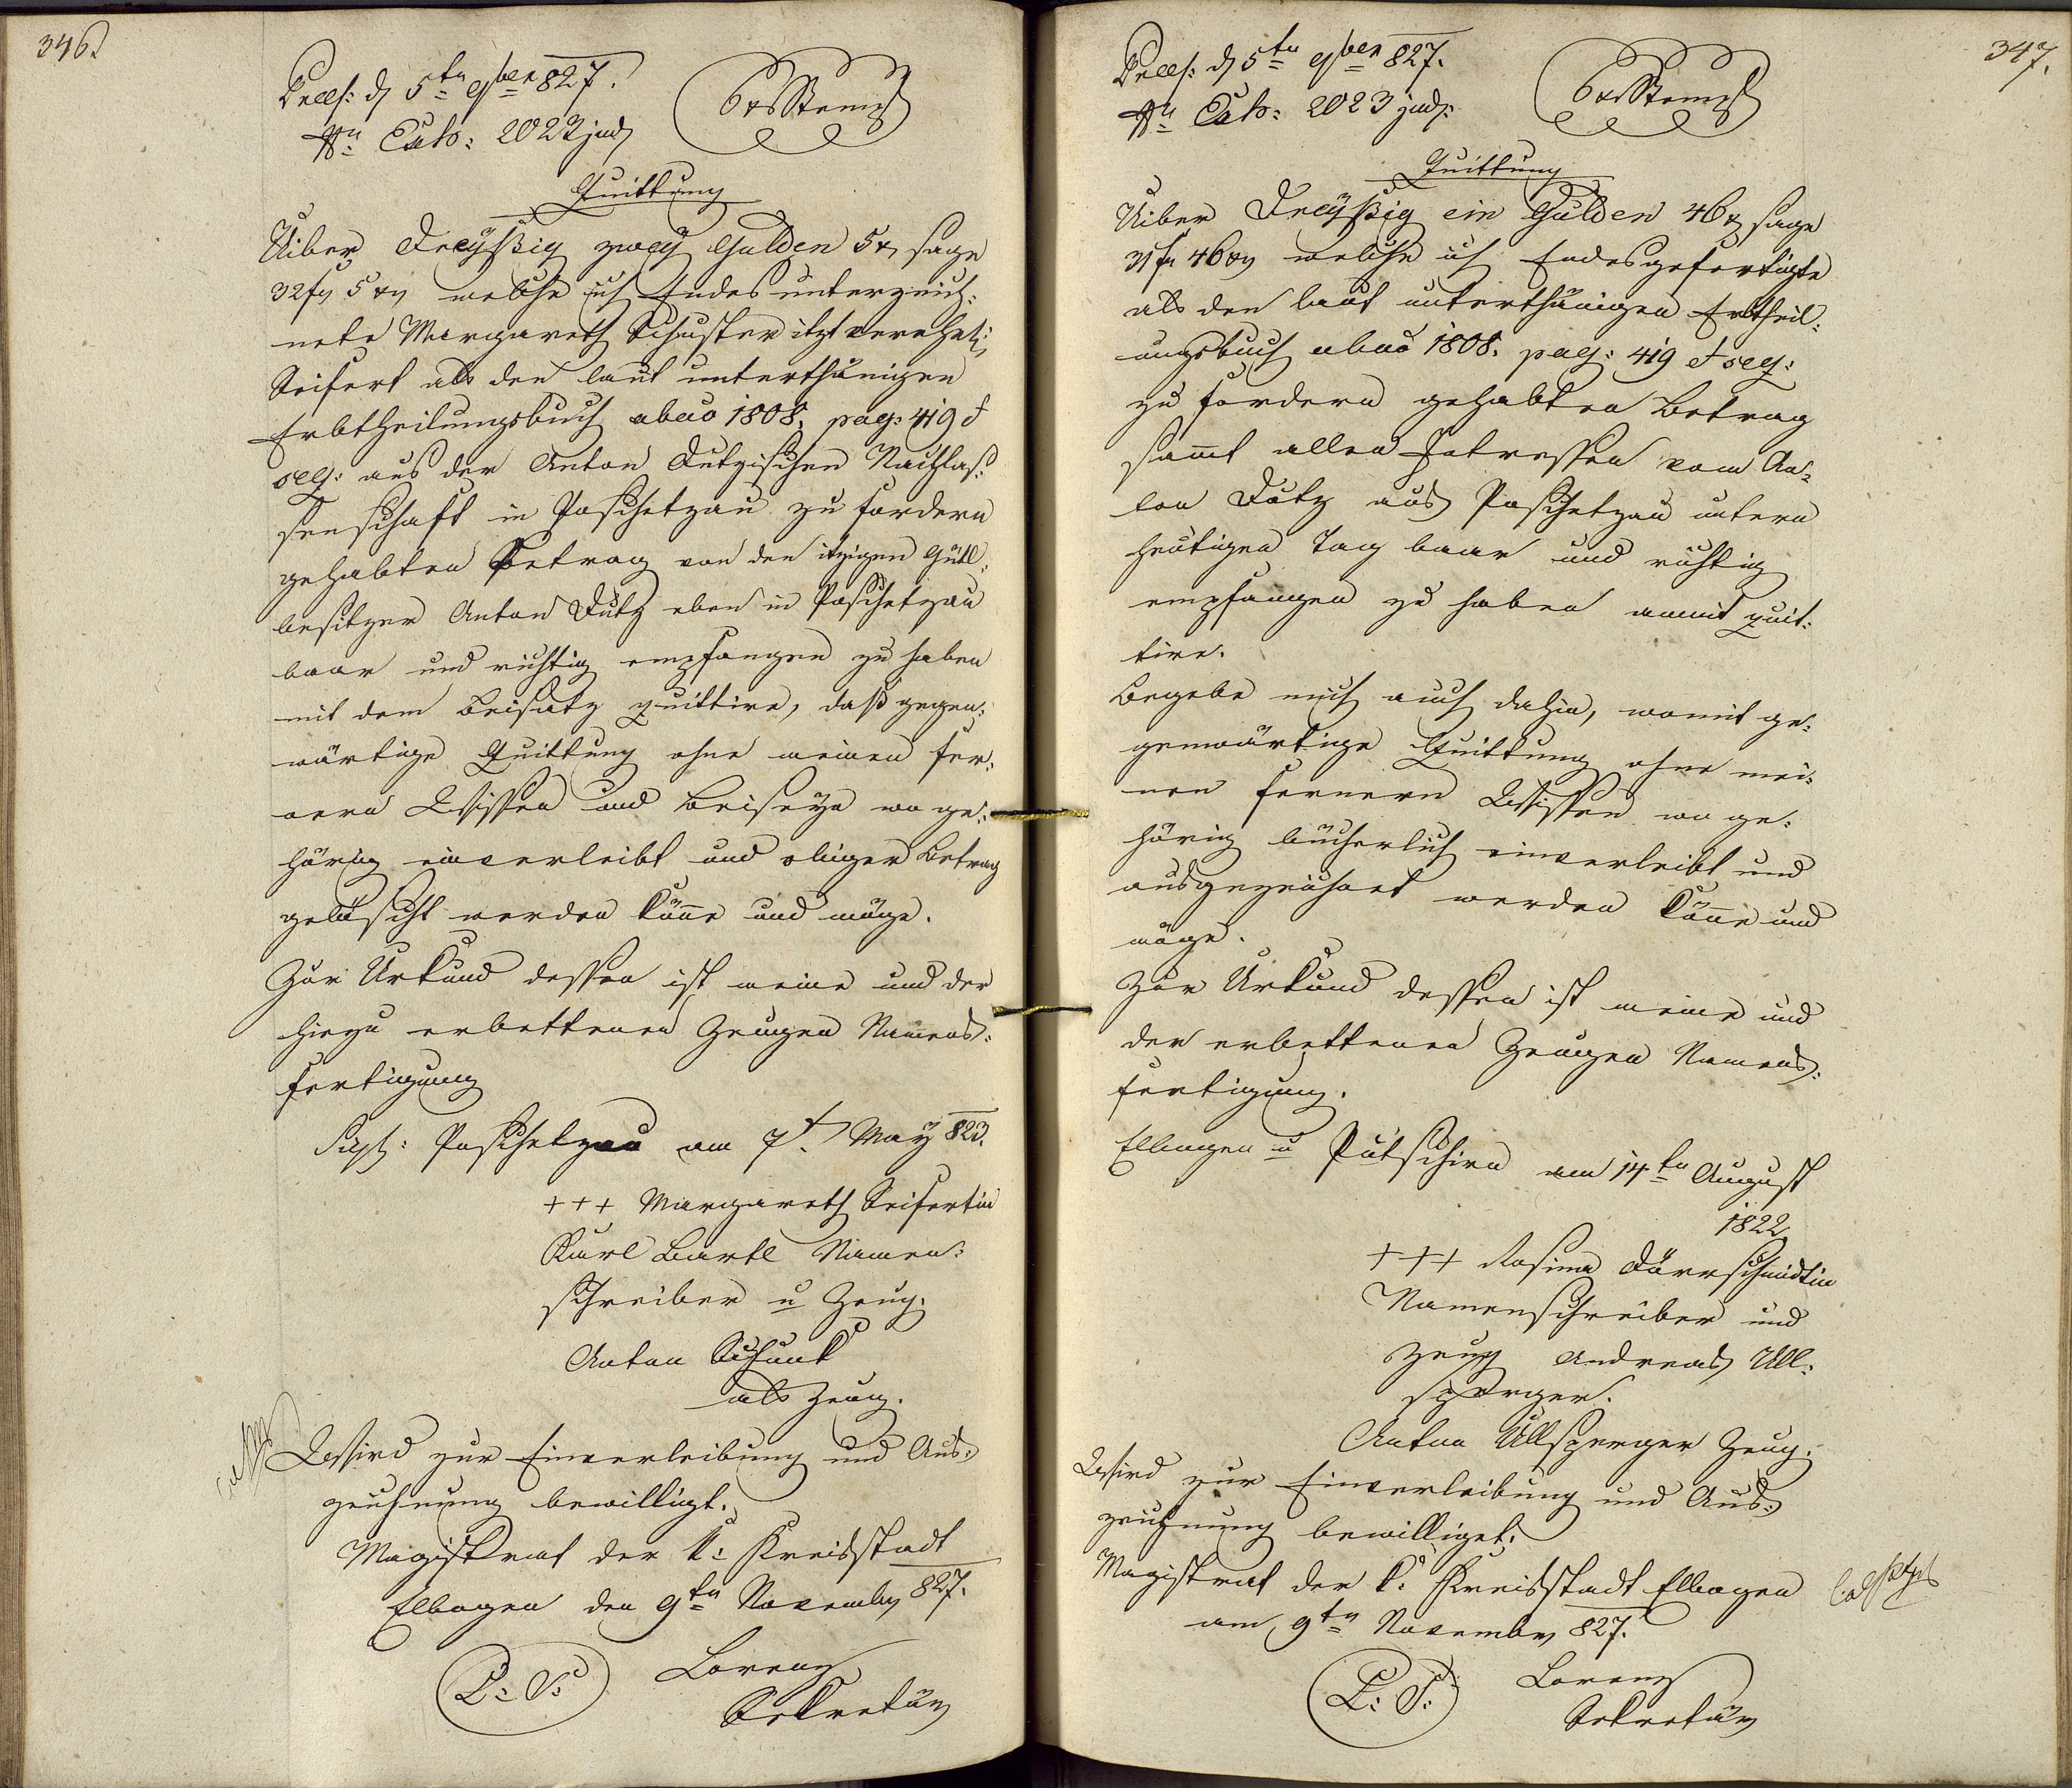 346.
Præs: d 5tn 9ber 827.
Nr: Exh: 2022 jud
6 xr Stempl
Quittung
Uiber Dreyßig zwey Gulden 5 x, sage
32 fl 5 xr welche ich Endesunterzeich:
nete Margareth Schuster itzt verehel:
Seifert als den laut unterthänigen
Erbtheilungsbuch abao 1808. pag: 419 et
seq: aus der Anton Dutzischen Nachlas:
senschaft in Poschetzau zu fordern
gehabten Betrag von den itzigen Gütl:
besitzer Anton Dutz eben in Poschetzau
baar und richtig empfangen zu haben
mit dem Beisatz quittire, daß gegen:
wärtige Quittung ohne meinen fer:
nern Wissen und Beiseyn wo ge:
hörig einverleibt und obiger Betrag
gelöscht werden könne und möge.
Zur Urkund dessen ist meine und der
hiezu erbettenen Zeugen Namens:
fertigung
Sigl: Poschetzau am 7t May 823.
+++ Margareth Seifertin
Karl Bartl Namen:
schreiber u Zeug.
Anton Schunk
als Zeug.
Wird zur Einverleibung und Aus:
zeichnung bewilligt.
Magistrat der k: Kreisstadt
Elbogen den 9tn November 827.
L: S:
Lorenz
Sekretär
347.
Præs: d 5tn 9ber 827.
Nr: Exh: 2023 jud:
6 xr Stempl
Quittung
Uiber Dreyßig ein Gulden 46 x sage
31 fl 46 xr welche ich Endesgefertigte
als den laut unterthänigen Erbtheil:
ungsbuch abao 1808. pag: 419 et seq:
zu fordern gehabten Betrag
sammt allen Intressen vom An:
ton Dutz aus Poschetzau untern
heutigen Tag baar und richtig
empfangen zu haben anmit quit:
tire.
Begebe mich auch dahin, womit ge:
genwärtige Quittung ohne mei:
nen fernern Wissen wo ge:
hörig bücherlich einverleibt und
ausgezeichnet werden könne und
möge.
Zur Urkund dessen ist meine und
der erbettenen Zeugen Namens:
fertigung.
Elbogen u Putschirn am 14tn August
1822
+++ Rosina Dürrschmidtin
Namenschreiber und
Zeug Andreas Ull:
sperger.
Anton Ullsperger Zeug.
Wird zur Einverleibung und Aus:
zeichnung bewilliget.
Magistrat der k: Kreisstadt Elbogen
am 9tn November 827.
L: S:
Lorenz
Sekretär